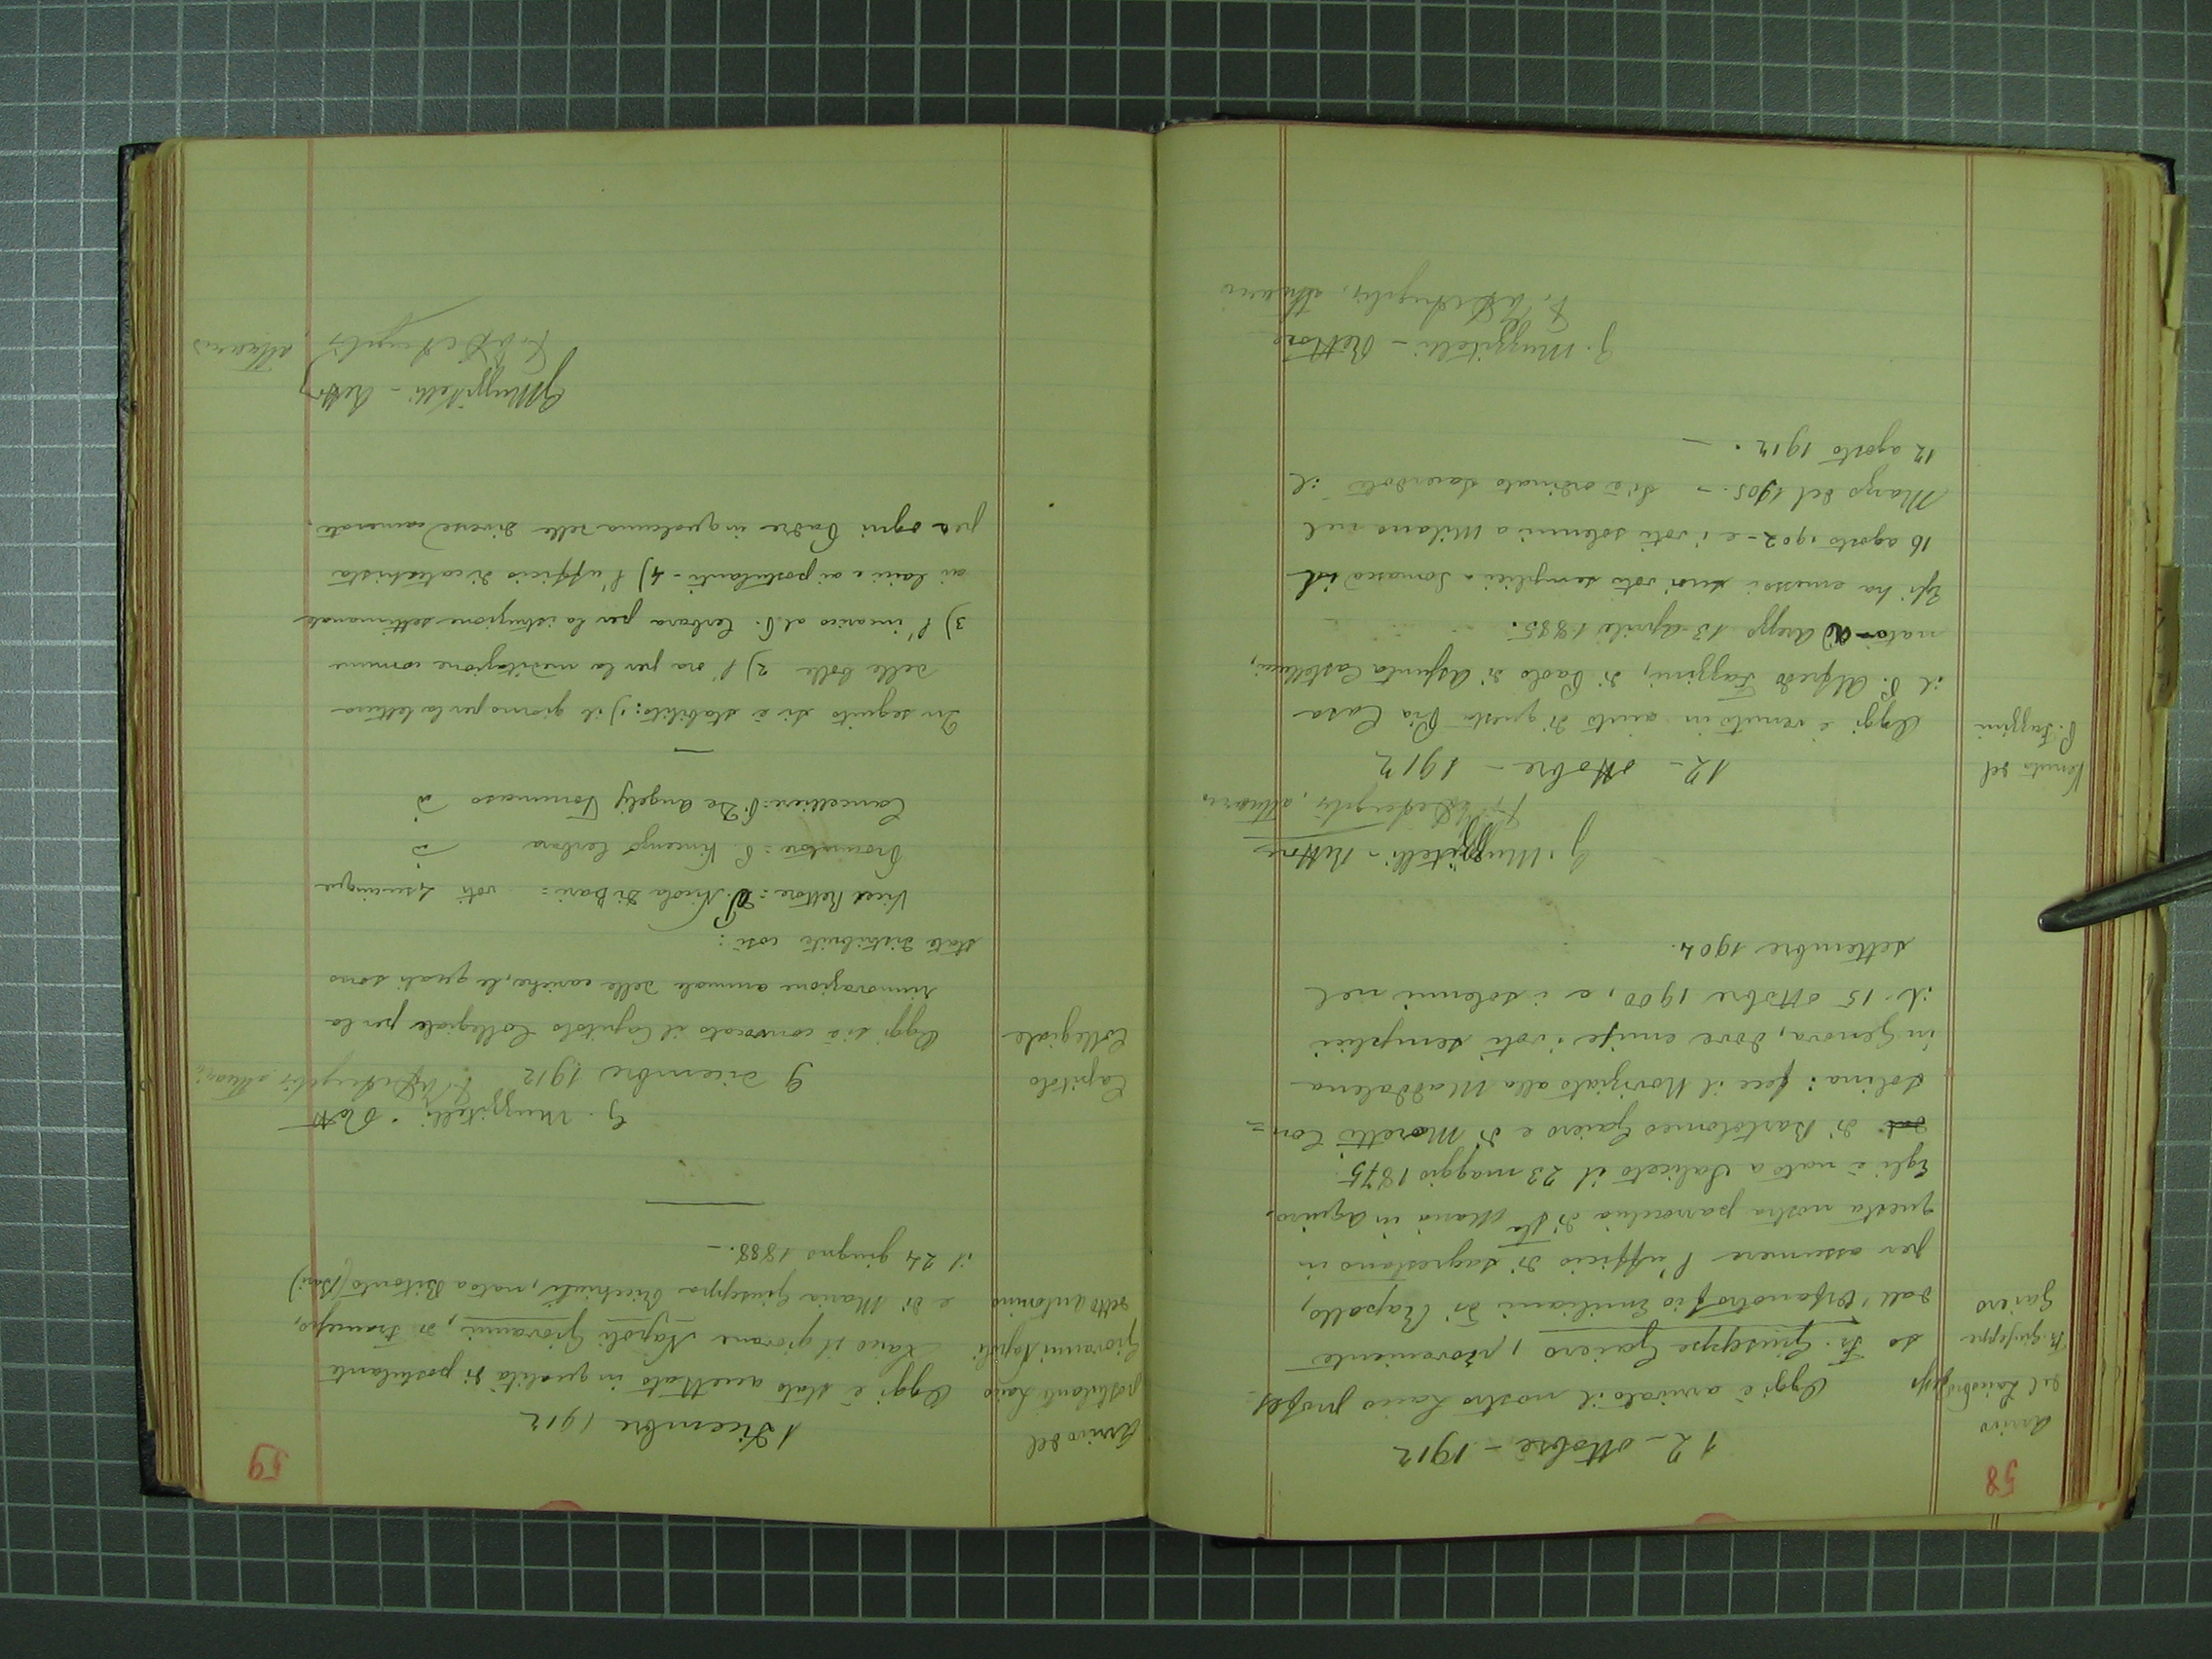 58
12 - ottobre - 1912
Arrivo
del Laico prof.
Fr. Giuseppe
Gariero
Oggi è arrivato il nostro Laico profes
so Fr. Giuseppe Gaiero, proveniente
dall'Orfanotrofio Emiliani di Rapallo,
per assumere l'ufficio di sagrestano in
questa nostra parrocchia di Sta Maria in Aquiro.
Egli è nato a Saliceto il 23 maggio 1875
di Bartolomeo Gaiero e di Moretti Con=
solina: fece il Noviziato alla Maddalena
in Genova, dove emise i voti semplici
il 15 ottobre 1900, e i solenni nel
settembre 1904.
G. Muzzitelli - Rettore
P. DeAngelis, attuario
12 - ottobre - 1912
Venuta del
P. Fazzini
Oggi è venuto in aiuto di questa Pia Casa
il P. Alfredo Fazzini, di Paolo di Assunta Castellucci,
nato ad Arezzo 13 aprile 1885.
Egli ha emesso i suoi voti semplici a Somasca il
16 agosto 1902 - e i voti solenni a Milano nel
Marzo del 1905. - Si è ordinato sacerdote il
12 agosto 1912. -
G. Muzzitelli - Rettore
P. DeAngelis, attuario
59
1 Dicembre 1912
Arrivo del
postulante Laico
Giovanni Napoli
detto Antonino
Oggi è stato accettato in qualità di postulante
Laico il giovane Napoli Giovanni, di Francesco,
e di Maria Giuseppa, nato a Bitonto (Bari)
il 24 giugno 1888. -
G. Muzzitelli - Rett
P. DeAngelis attuario
9 dicembre 1912
Capitolo
Collegiale
Oggi si è convocato il Capitolo Collegiale per la
rinnovazione annuale delle cariche, le quali sono
state distribuite così:
Vice Rettore = P. Nicola Di Bari = voti
Procuratore = P. Vincenzo Cerbara
Cancelliere: P. De Angelis Tommaso
In seguito si è stabilito: 1) il giorno per la lettura
delle bolle 2) l'ora per la meditazione comune
3) l'incarico al P. Cerbara per la istruzione settimanale
ai laici e ai postulanti - 4) l'ufficio di catechista
per ogni Padre in qualcuna delle diverse camerate.
G Muzzitelli - Rett
P. DeAngelis, attuario